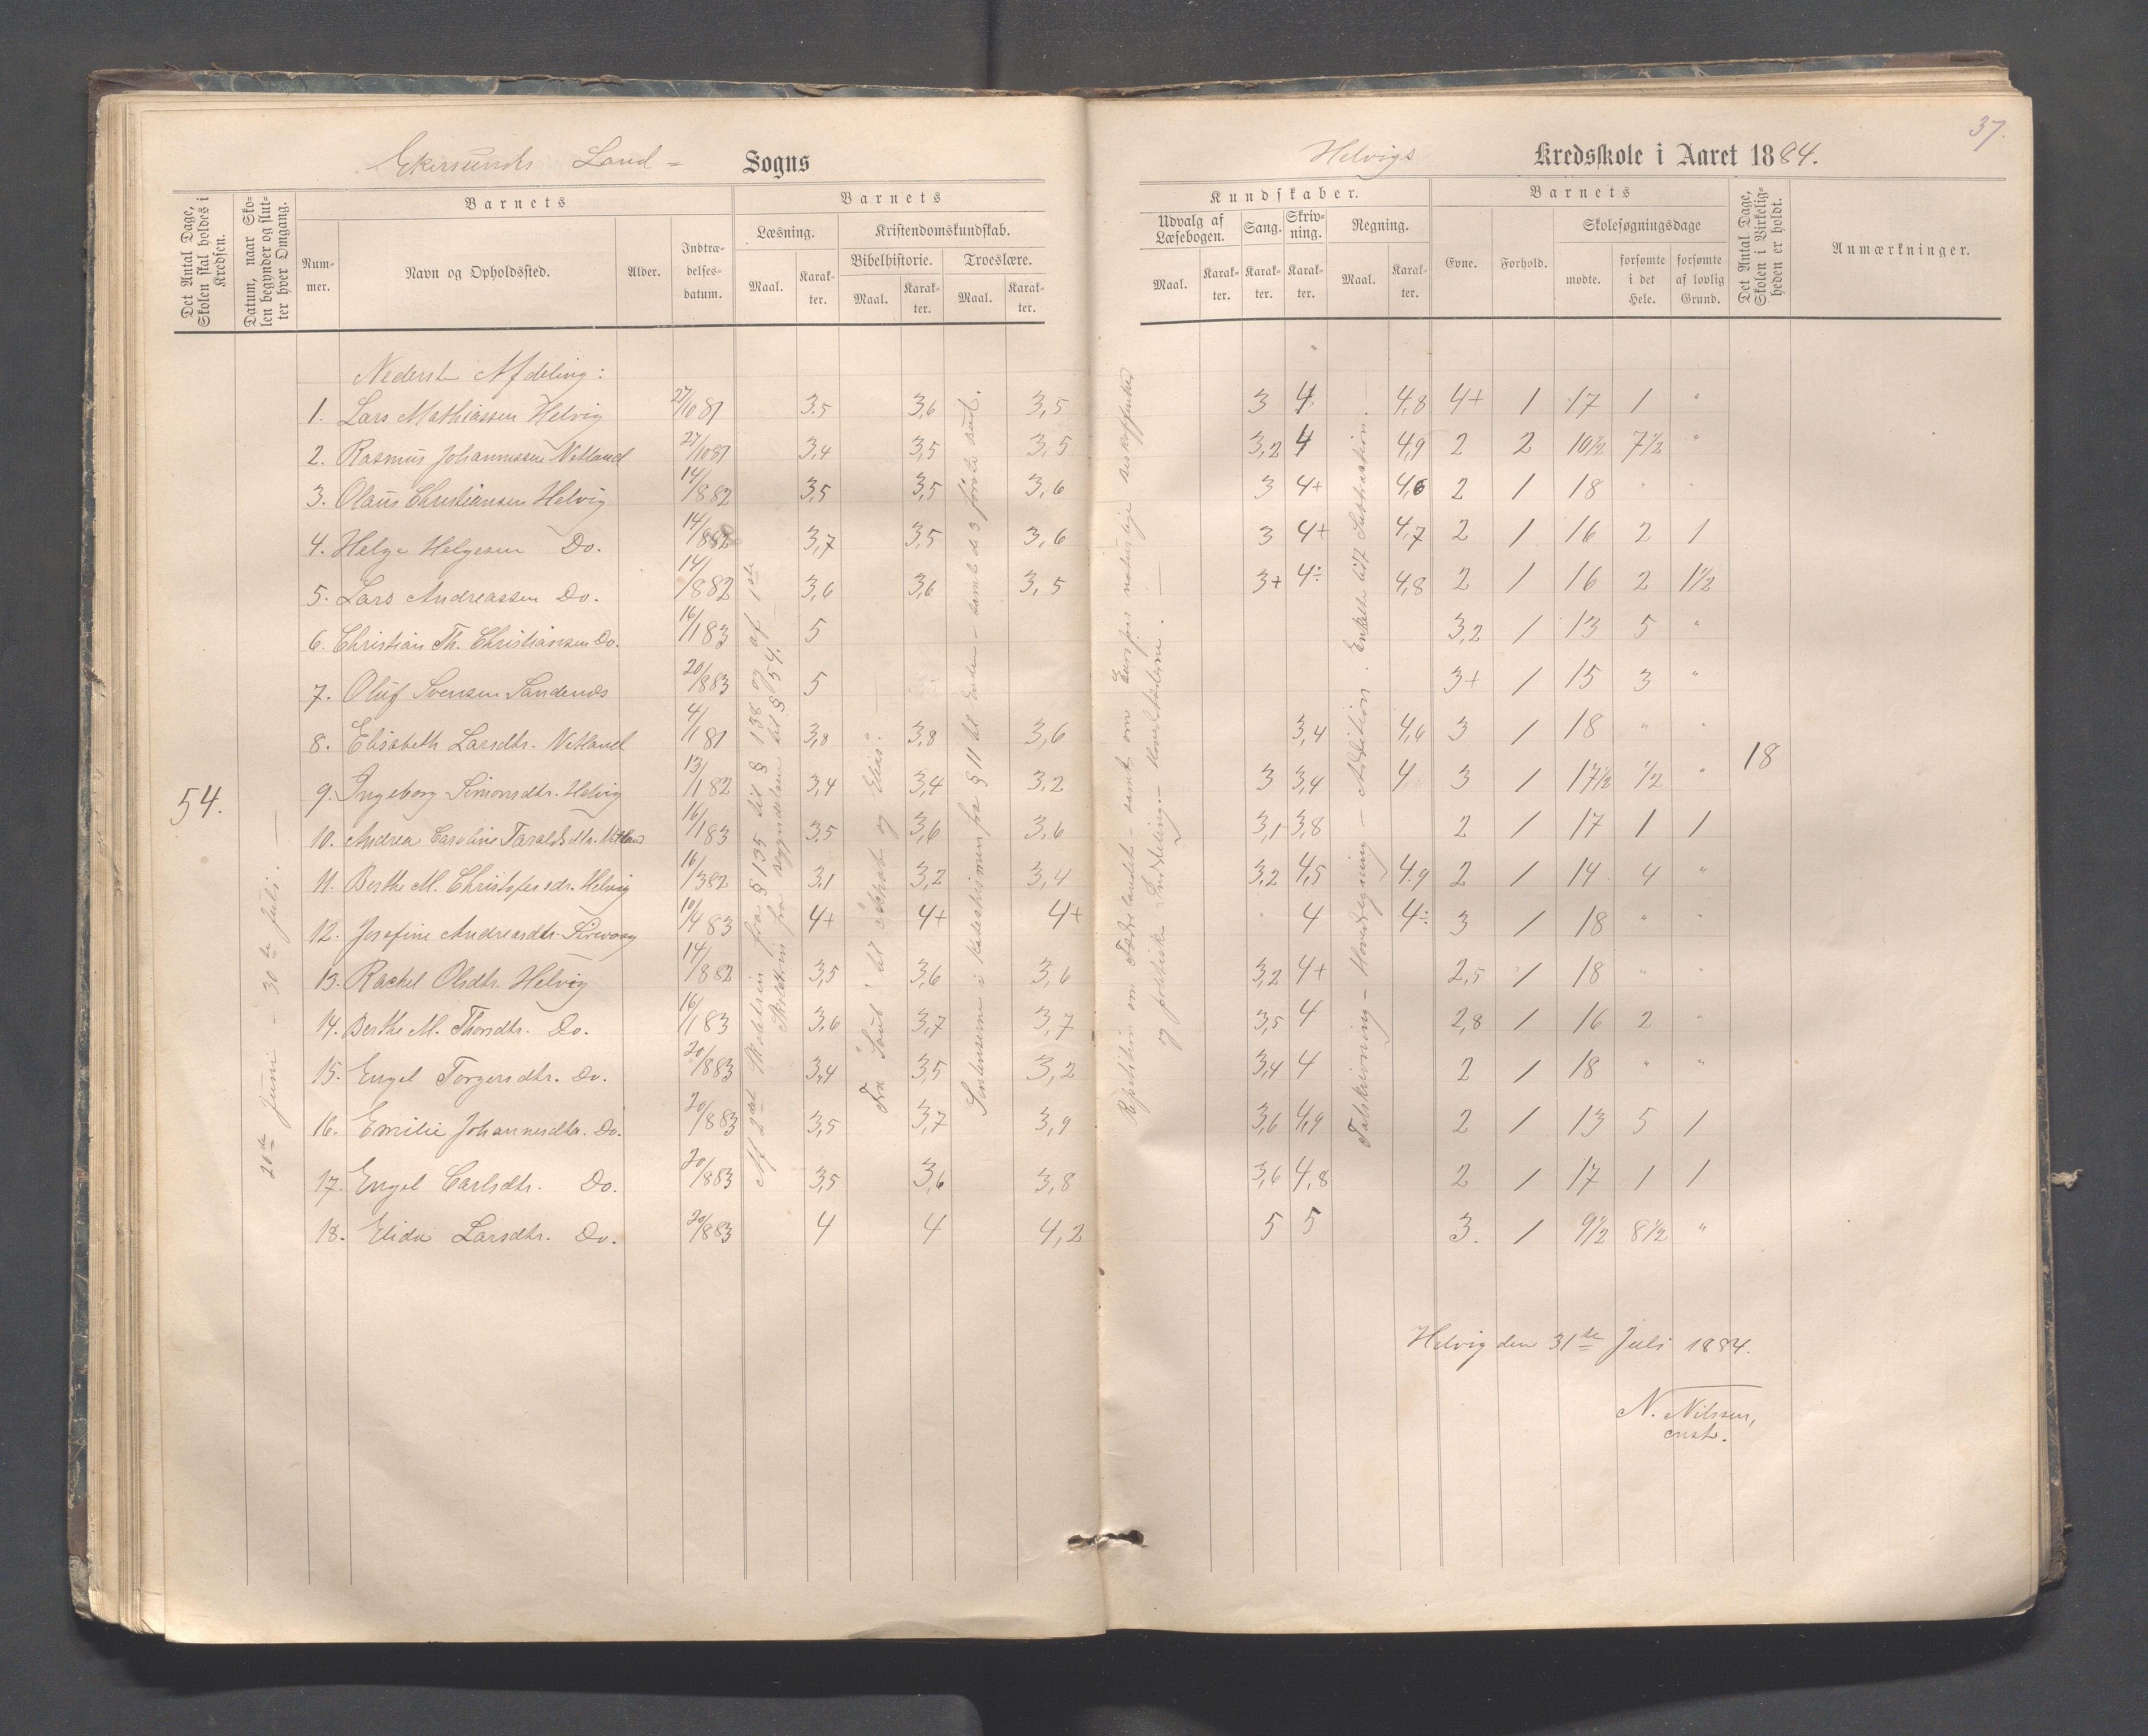 37.
Ekersunds Land - Sogns
Helvigs Kredsskole i Aaret 1884.
Det Antal Dage, Skolen skal holdes i Kredsen.
Datum, naar Skolen begynder og slutter hver Omgang.
Barnets
Nummer.
Navn og Opholdssted.
Alder.
Indtrædelsesdatum.
Barnets
Læsning.
Maal.
Karakter.
Kristendomskundskab.
Bibelhistorie.
Maal.
Karakter.
Troeslære.
Maal.
Karakter.
Kundskaber.
Udvalg af Læsebogen.
Maal.
Karakter.
Sang.
Karakter.
Skrivning.
Karakter.
Regning.
Maal.
Karakter.
Barnets
Evne.
Forhold.
Skolesøgningsdage
mødte.
forsømte i det Hele.
forsømte af lovlig Grund.
Det Antal Dage, Skolen i Virkeligheden er holdt.
Anmærkninger.
Nederste Afdeling:
1. Lars Mathiassen Helvig 27/10 81 3.5 3,6 3,5 3 4 4,8 4+ 1 17 1 "
2. Rasmus Johannessen Netland 27/10 81 3.4 3,5 3,5 3,2 4 4,9 2 2 10 1/2 7 1/2 "
3. Olaus Christiansen Helvig 14/8 82 3,5 3,5 3,6 3 4+ 4,6 2 1 18 " "
4. Helge Helgesen Do. 14/8 82 3,7 3,5 3,6 3 4+ 4,7 2 1 16 2 1
5. Lars Andreassen Do. 14/8 82 3,6 3,6 3,5 3+ 4÷ 4,8 2 1 16 2 1 1/2
6. Christian Th. Christiansen Do. 16/1 83 5 3,2 1 13 5 "
7. Oluf Svensen Sandenes 20/8 83 5 3+ 1 15 3 "
8. Elisabeth Larsdtr. Netland 4/1 81 3,8 3,8 3,6 3,4 4,6 3 1 18 " "
9. Ingeborg Simonsdtr. Helvig 13/1 82 3,4 3,4 3,2 3 3,4 4 3 1 17 1/2 1/2 "
10. Andrea Caroline Taraldsdtr. Netland 16/1 83 3.5 3,6 3,6 3,1 3,8 2 1 17 1 1
11. Berthe M. Christofersdr. Helvig 16/3 82 3.1 3,2 3,4 3,2 4,5 4.9 2 1 14 4 "
12. Josefine Andreasdtr. Sirevaag 10/4 83 4+ 4+ 4+ 4 4÷ 3 1 18 " "
13. Rachel Olsdtr. Helvig 14/8 82 3,5 3,6 3,6 3,2 4+ 2,5 1 18 " "
14. Berthe M. Thorsdtr. Do. 16/1 83 3.6 3,7 3,7 3,5 4 2,8 1 16 2 "
15. Engel Torgersdtr. Do. 20/8 83 3,4 3,5 3,2 3,4 4 2 1 18 " "
16. Emilie Johannesdtr. Do. 20/8 83 3,5 3,7 3,9 3,6 4,9 2 1 13 5 1
17. Engel Carlsdtr. Do. 20/8 83 3,5 3,6 3,8 3,6 4,8 2 1 17 1 1
18. Elida Larsdtr. Do. 20/8 83 4 4 4,2 5 5 3. 1 9 1/2 8 1/2 "
54.
20de Juni - 30te Juli. —
Af 2det Skoletrin fra § 135 til § 138 og af 1ste
Skoletrin fra begyndelsen til § 54.
Fra "Saul" til "Akab og Elias". —
Sentenserne i Katechismen fra § 11 til Enden - samt de 3 første
Repetition om Fædrelandet - samt om Europas naturlige Beskaffenhed
og politiske Inddeling. - Hovedstæderne. —
Talskrivning - Hovedregning - Addition. Enkelte lidt Subtraktion.
18
Helvig den 31te Juli 1884.
N. Nilssen,
const.